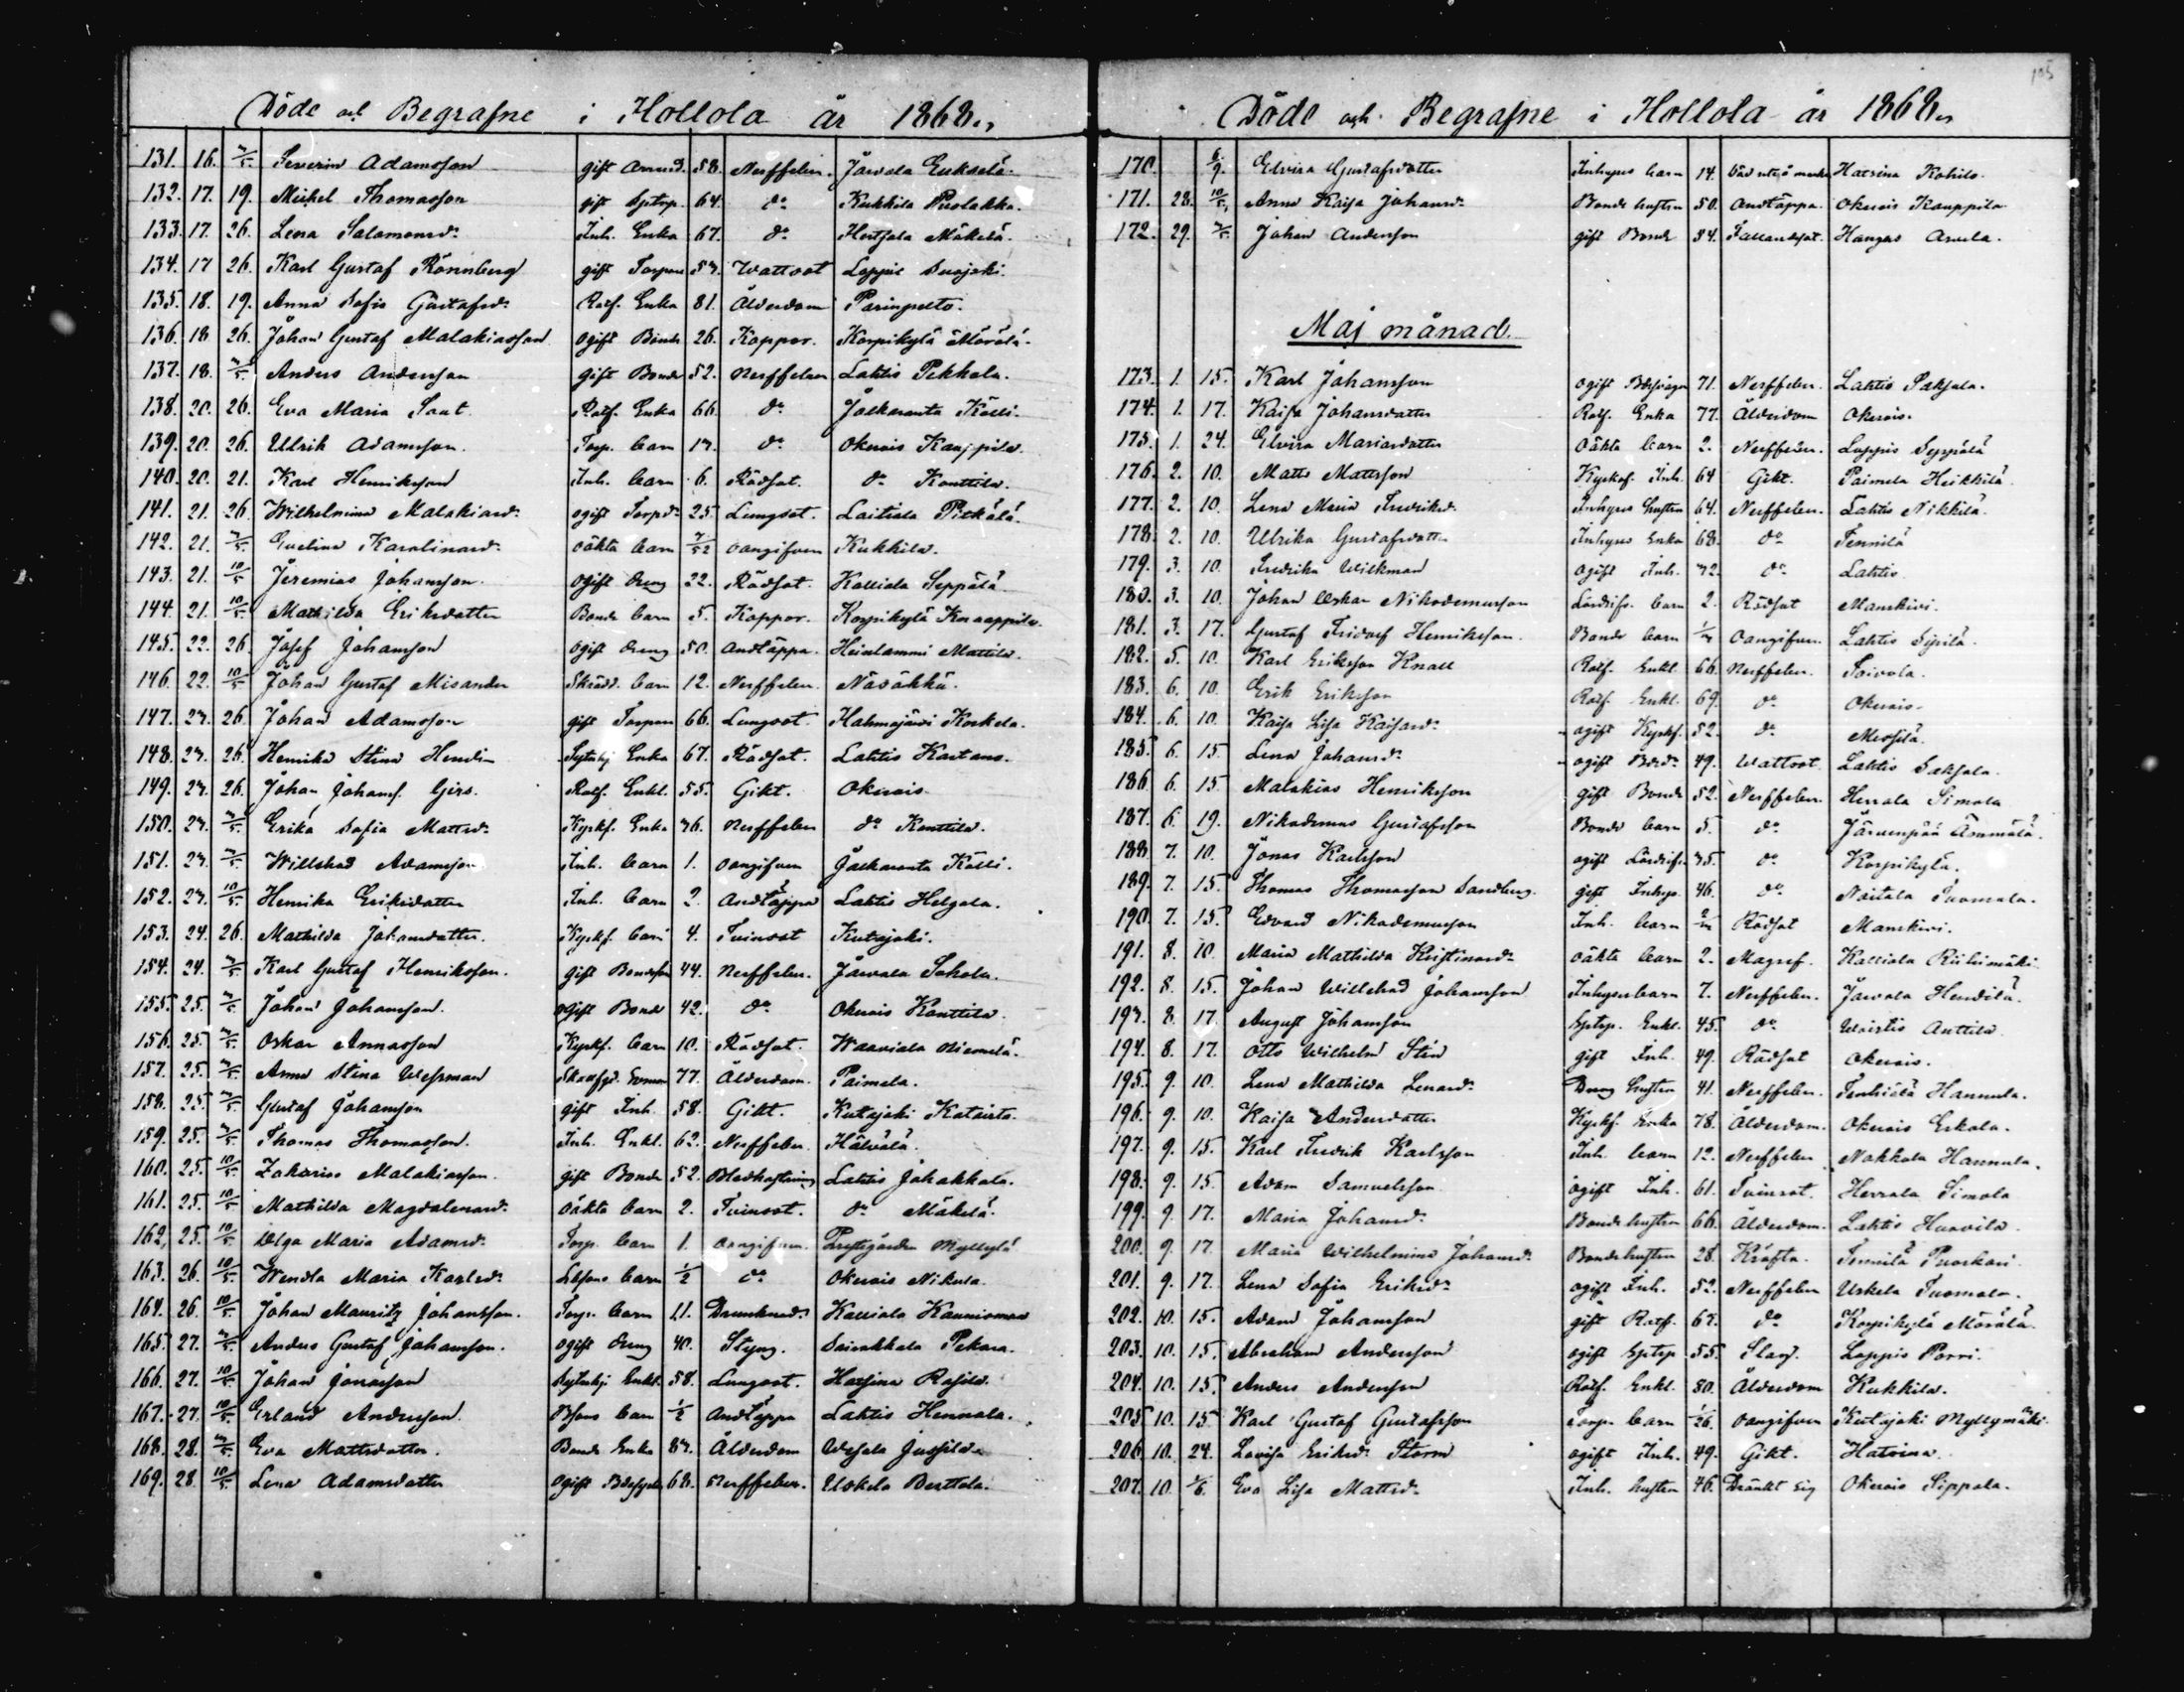 Döde och Begrafne i Hollola år 1868.
131. 16. 3/5. Severin Adamsson gift 58. Nerffeber. Jarvala Eukselä.
132. 17. 19. Mickel Thomasson gift 64. do Kukkila Puolakka.
133. 17. 26. Lena Salamonsd. Inh. Enka 67. do Hertsala Mäkelä.
134. 17 26. Karl Gustaf Rönnberg gift Torpare 53. Wattsot Loppis
135. 18. 19. Anna Sofia Gustafsd. Rotf. Enka 81. Ålderdom Parinpelto.
136. 18 26. Johan Gustaf Malakiasson ogift Bonde 26. Koppor. Korpikylä Mörälä.
137. 18. 3/5. Anders Andersson gift Bonde 52. Nerffeber Lahtis Pekkala.
138. 20. 26. Eva Maria Saat Rotf. Enka 66. do Jalkaranta Källi.
139. 20. 26. Ulrik Adamsson. Torp. barn 13. do Okerois Kauppila.
140. 20. 21. Karl Henriksson Inh. barn 6. Rödsot. do Konttila.
141. 21. 26. Wilhelmina Malakiasd. ogift Torpd. 25. Lungsot. Laitiala Pietälä.
142. 21. 3/5. Evelina Karolinasd. oäkta barn 3/52 oangifven Kukkila.
143. 21. 10/5. Jeremias Johansson. ogift dreng 22. Rödsot. Kalliola Seppälä
144. 21. 10/5. Mathilda Eriksdotter Bonde barn 5. Koppor. Korpikylä Knaappila.
145. 22. 26. Josef Johansson ogift dreng 50. Andtäppa. Heinlammi Mattila.
146. 22. 10/5. Johan Gustaf Misander Skrädd. barn 12. Nerffeber. Näsäkkä.
147. 23. 26. Johan Adamsson gift Torpare 66. Lungsot. Hahmajärvi Korkela.
148. 23. 26. Henrika Stina Enka 67. Rödsot. Lahtis Kartano.
149. 23. 26. Johan Johansf. Girs. Rotf. Enkl. 55. Gikt. Okerois
150. 23. 3/5. Erika Sofia Mattsd. Kyrkf. Enka 36. Nerffeber do Konttila.
151. 23. 3/5. Willehad Adamsson Inh. barn 1. oangifven Jalkaranta Källi.
152. 23. 10/5. Henrika Eriksdotter Inh. barn 2. Andtäppa Lahtis Helgala.
153. 24. 26. Mathilda Johansdotter. Kyrkf. barn 4. Tvinsot Kutajoki.
154. 24. 3/5. Karl Gustaf Henriksson. gift Bondeson 44. Nerffeber. Jarvala Sohola.
155. 25. 3/5. Johan Johansson. ogift Bonde 42. do Okerois Konttila.
156. 25. 3/5. Oskar Annasson Kyrkf. barn 10. Rödsot. Waaviala Niemelä.
157. 25. 3/5. Anna Stina Wessman 77. Ålderdom. Paimela.
158. 25. 3/5. Gustaf Johansson gift Inh. 58. Gikt. Kutajoki Kataisto.
159. 25. 3/5. Thomas Thomasson. Inh. Enkl. 62. Nerffeber Hälvälä.
160. 25. 10/5. Zakarias Malakiasson. gift Bonde 52. Blodhostning Lahtis Jahakkala.
161. 25. 10/5. Mathilda Magdalenasd. oäkta barn 2. Tvinsot. do Mäkelä.
162. 25. 10/5. Olga Maria Adamsd. Torp. barn 1. oangifven. Prestgården Myllylä
163. 26. 10/5. Wendla Maria Karlsd. barn 1/2 do Okerois Nikula.
164. 26. 10/5. Johan Mauritz Johansson. Torp. barn 11. Drunknad. Kalliola Kaunismaa
165. 27. 3/5. Anders Gustaf Johansson. ogift dreng 40. Styng. Sairakkala Pekara.
166. 27. 10/5. Johan Jonasson Enkl. 58. Lungsot. Hatsina Rajula.
167. 27. 10/5. Erland Andersson. barn 1/2 Andtäppa Lahtis Hennala.
168. 28. 3/5. Eva Mattsdotter. Bonde Enka 83. Ålderdom Wesala Jussila.
169. 28 10/5. Lena Adamsdotter ogift 68. Nerffeber. Uskela Berttala.
105
Döde och Begrafne i Hollola år 1868.
170. 6. 9. Elvira Gustafsdotter Inhyses barn 14. Hatsina Kohilo.
171. 28. 10/5. Anna Kajsa Johansd. Bonde hustru 50. Andtäppa. Okerois Kauppila
172. 29. 3/5. Johan Andersson gift Bonde 34. Fallandsot. Hangas Arvela.
Maj månad.
173. 1. 15. Karl Johansson ogift 71. Nerffeber. Lahtis Paksala.
174. 1. 17. Kajsa Johansdotter Rotf. Enka 77. Ålderdom Okerois.
175. 1. 24. Elvira Mariasdotter oäkta barn 2. Nerffeber. Loppis Seppälä
176. 2. 10. Matts Mattsson Kyrkof. Inh. 64 Gikt. Paimela Heikkilä
177. 2. 10. Lena Maria Fredriksd. Inhyses hustru 64. Nerffeber. Lahtis Nikkilä.
178. 2. 10. Ulrika Gustafsdotter Inhyses Enka 68. do Tennilä
179. 3. 10. Fredrika Wilkman ogift Inh. 32. do Lahtis
180. 3. 10. Johan Oskar Nikodemusson barn 2. Rödsot Manskivi.
181. 3. 17. Gustaf Fridolf Henriksson. Bonde barn oangifven. Lahtis Sipilä.
182. 5. 10. Karl Eriksson Knall Rotf. Enkl. 66. Nerffeber. Soivola.
183. 6. 10. Erik Eriksson Rotf. Enkl. 69. do Okerois.
184. 6. 10. Kajsa Lisa Kajsasd. ogift Kyrkf. 52. do Messilä.
185. 6. 15. Lena Johansd. ogift 49. Wattsot. Lahtis Paksala.
186 6. 15. Malakias Henriksson gift Bonde 52. Nerffeber. Herrala Simola
187. 6. 19. Nikodemus Gustafsson Bonde barn 5. do Järvenpää Ämmälä.
188 7. 10. Jonas Karlsson ogift 35. do Korpikylä.
189. 7. 15. Thomas Thomasson Sandberg. gift Inhys. 46. do Noitala Tuomala.
190. 7. 15. Edvard Nikodemusson Inh. barn Rödsot Manskivi.
191. 8. 10. Maria Mathilda Kristinasd. oäkta barn 2. Magref. Kalliola Riihimäki
192. 8. 15. Johan Willehad Johansson Inhyses barn 7. Nerffeber. Jarvala Hendilä.
193. 8. 17. August Johansson Enkl. 45. do Woistio Anttila
194. 8. 17. Otto Wilhelm Stén gift Inh. 49. Rödsot Okerois.
195. 9. 10. Lena Mathilda Lenasd. Dreng hustru 41. Nerffeber. Tenhiälä Hannula.
196. 9. 10. Kajsa Andersdotter Kyrkf. Enka 78. Ålderdom. Okerois Erkola.
197. 9. 15. Karl Fredrik Karlsson Inh. barn 12. Nerffeber Nokkola Hannula.
198. 9. 15. Adam Samuelsson ogift Inh. 61. Tvinsot. Herrala Simola
199. 9. 17. Maria Johansd. Bonde hustru 66. Ålderdom. Lahtis Huovila.
200. 9. 17. Maria Wilhelmina Johansd. Bonde hustru 28. Kräfta. Tennilä Puoskari
201. 9. 17. Lena Sofia Eriksd. ogift Inh. 52. Nerffeber Uskela Tuomala.
202. 10. 15. Adam Johansson gift Rotf. 67. do Korpikylä Mörälä
203. 10. 15. Abraham Andersson ogift 55. Slag. Loppis Porri.
204. 10. 15. Anders Andersson Rotf. Enkl. 80. Ålderdom Kukkila.
205 10. 15 Karl Gustaf Gustafsson Torp. barn 1/26. oangifven Kutajoki Myllymäki
206 10. 24. Lovisa Eriksd. Storm ogift Inh. 49. Gikt. Hatsina.
207. 10. 1/6. Eva Lisa Mattsd. Inh. hustru 46. Dränkt sig Okerois Sippola.